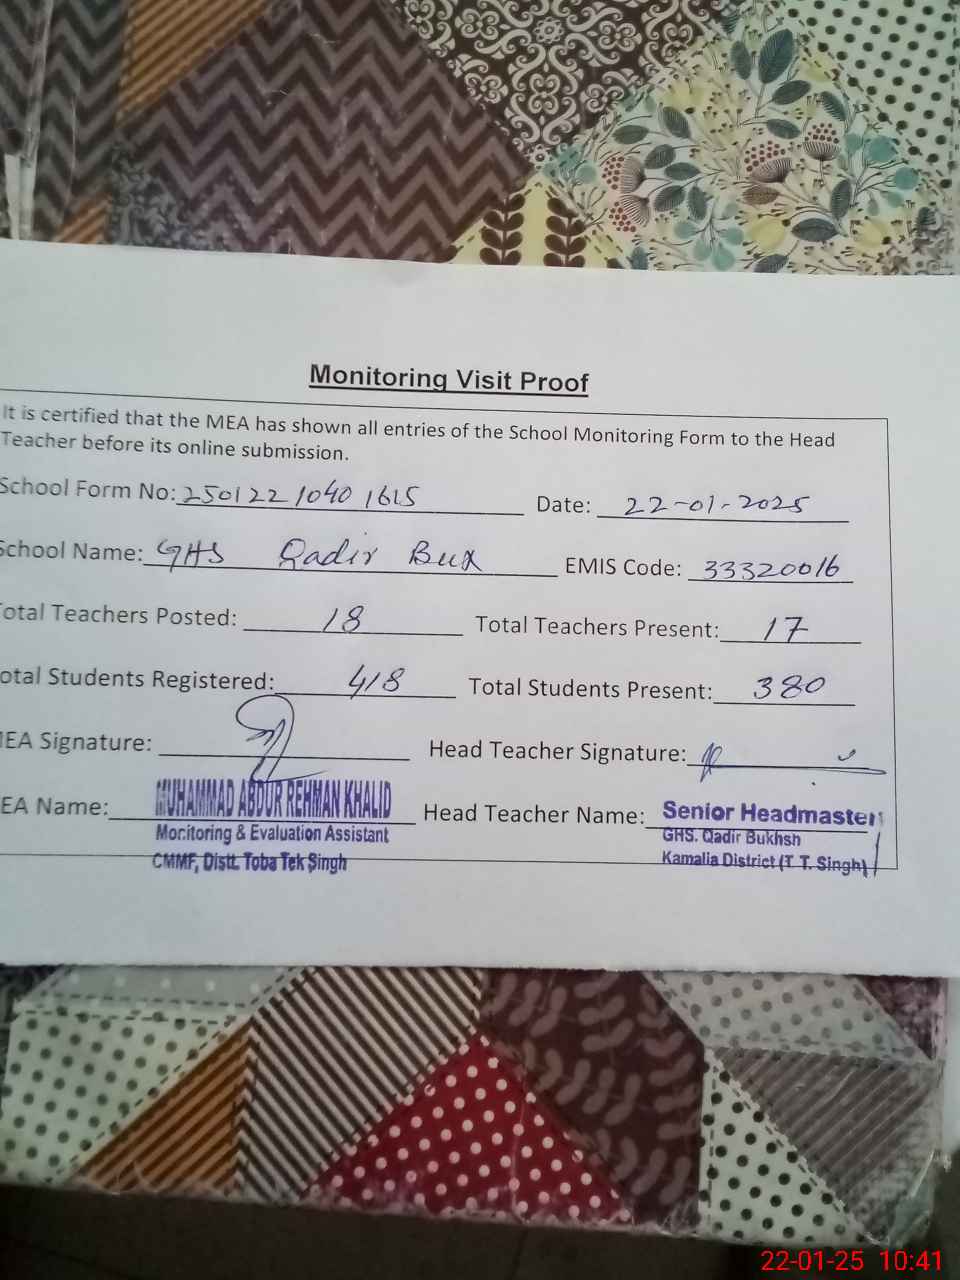 Monitoring Visit Proof
It is certified that the MEA has shown all entries of the School Monitoring Form to the Head
Teacher before its online submission.
School Form No: 250122 1040 1615 Date: 22-01-2025
School Name: GHS Qadir Bux EMIS Code: 33320016
Total Teachers Posted: 18 Total Teachers Present: 17
otal Students Registered: 418 Total Students Present: 380
MEA Signature: Head Teacher Signature:
EA Name: MUHAMMAD ABDUR REHMAN KHALID Head Teacher Name: Senior Headmaster
Monitoring & Evaluation Assistant GHS. Qadir Bukhsh
CMMF, Distt. Toba Tek Singh Kamalia District (T. T. Singh)
22-01-25 10:41